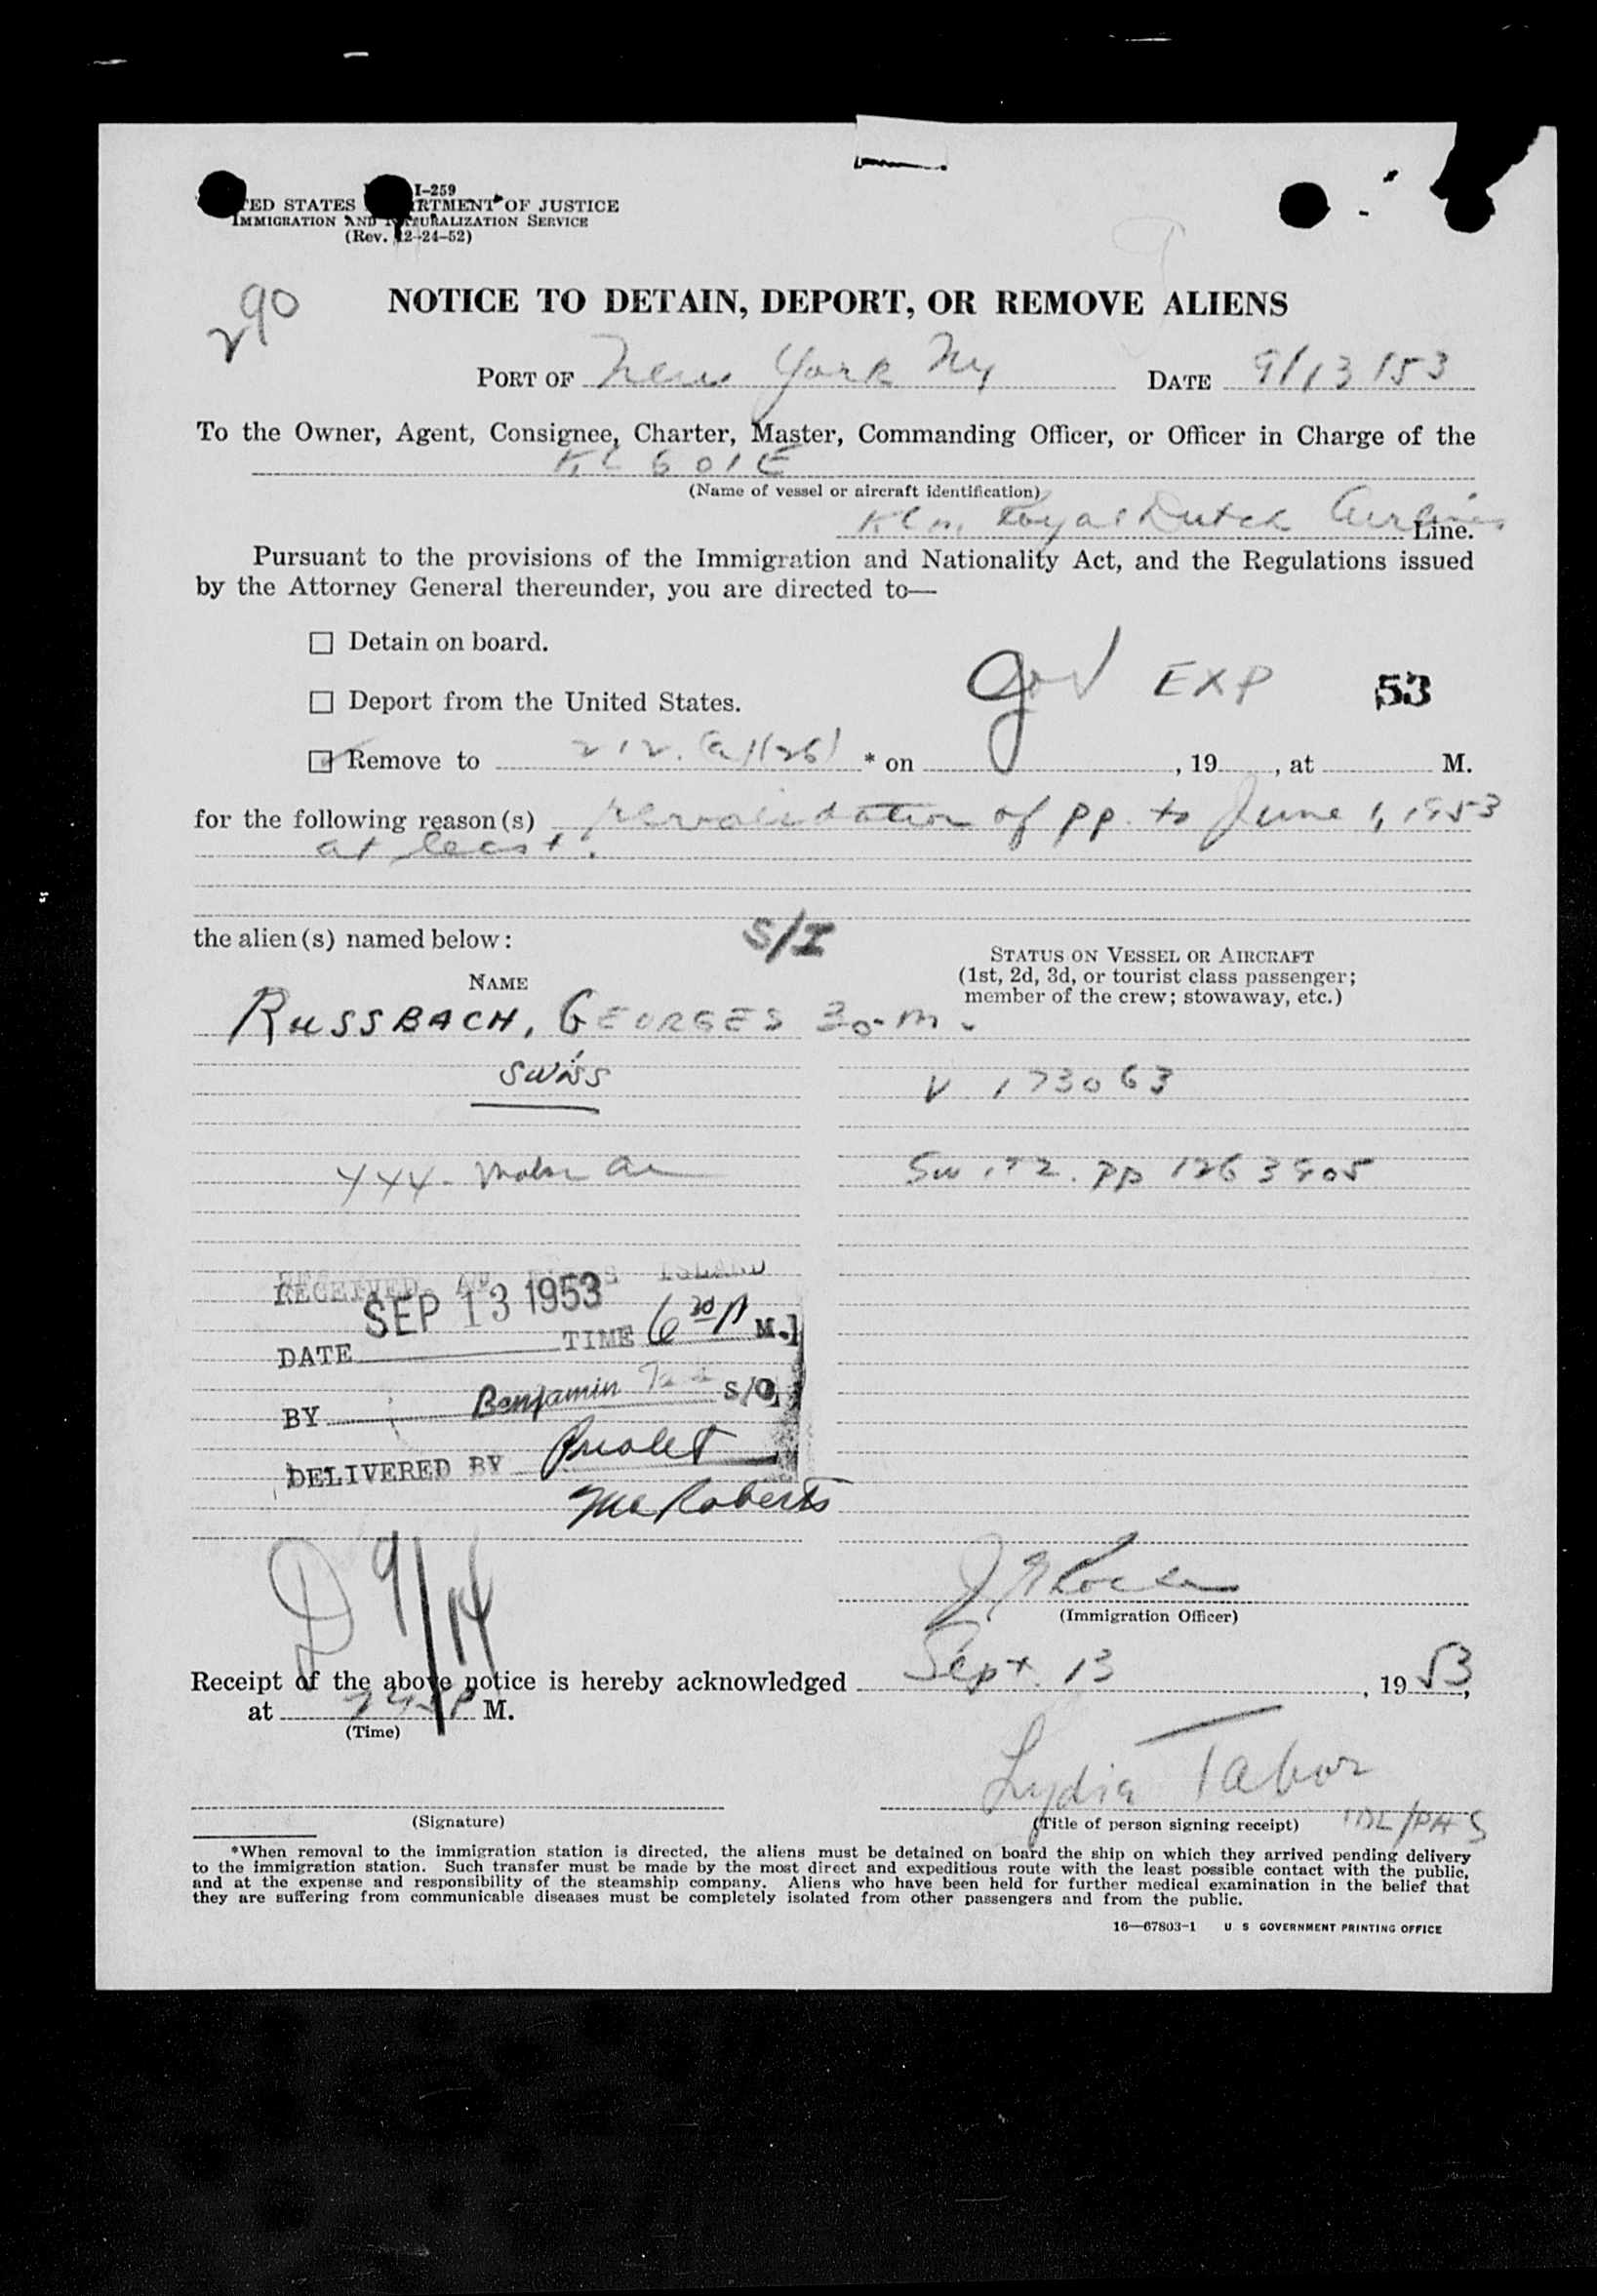 I-259
TED STATES RTMENT OF JUSTICE
IMMIGRATION AND NATURALIZATION SERVICE
(Rev. 12-24-52)
290
NOTICE TO DETAIN, DEPORT, OR REMOVE ALIENS
PORT OF New York Ny DATE 9/13/53
To the Owner, Agent, Consignee, Charter, Master, Commanding Officer, or Officer in Charge of the
KL 601 E
(Name of vessel or aircraft identification)
Klm. Royal Dutch Airlines Line.
Pursuant to the provisions of the Immigration and Nationality Act, and the Regulations issued
by the Attorney General thereunder, you are directed to—
☐ Detain on board.
gov EXP 53
☐ Deport from the United States.
☑ Remove to 212.(a)(26) * on , 19 , at M.
for the following reason(s), revalidation of pp. to June 1, 1953
at least.
S/I
the alien(s) named below:
STATUS ON VESSEL OR AIRCRAFT
NAME
(1st, 2d, 3d, or tourist class passenger;
member of the crew; stowaway, etc.)
RUSSBACH, GEORGES 30-m.
Swiss
V 173063
444- pp 1263905
RECEIVED ISLAND
SEP 13 1953
DATE TIME 6 30 P M.
BY Benjamin S/O
DELIVERED BY
McRoberts
D 9/14
(Immigration Officer)
Receipt of the above notice is hereby acknowledged Sept. 13, 1953,
at 745P M.
(Time)
Lydia Tabor
(Signature) (Title of person signing receipt)
*When removal to the immigration station is directed, the aliens must be detained on board the ship on which they arrived pending delivery
to the immigration station. Such transfer must be made by the most direct and expeditious route with the least possible contact with the public,
and at the expense and responsibility of the steamship company. Aliens who have been held for further medical examination in the belief that
they are suffering from communicable diseases must be completely isolated from other passengers and from the public.
16—67803-1 U S GOVERNMENT PRINTING OFFICE